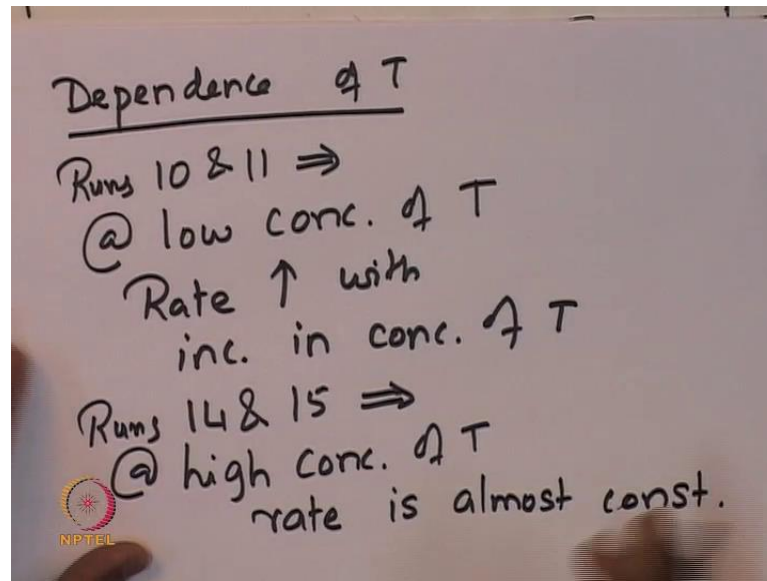 Dependence of T
Runs 10 & 11 ⇒
@ low conc. of T
Rate ↑ with
inc. in conc. of T
Runs 14 & 15 ⇒
@ high conc. of T
rate is almost const.
NPTEL